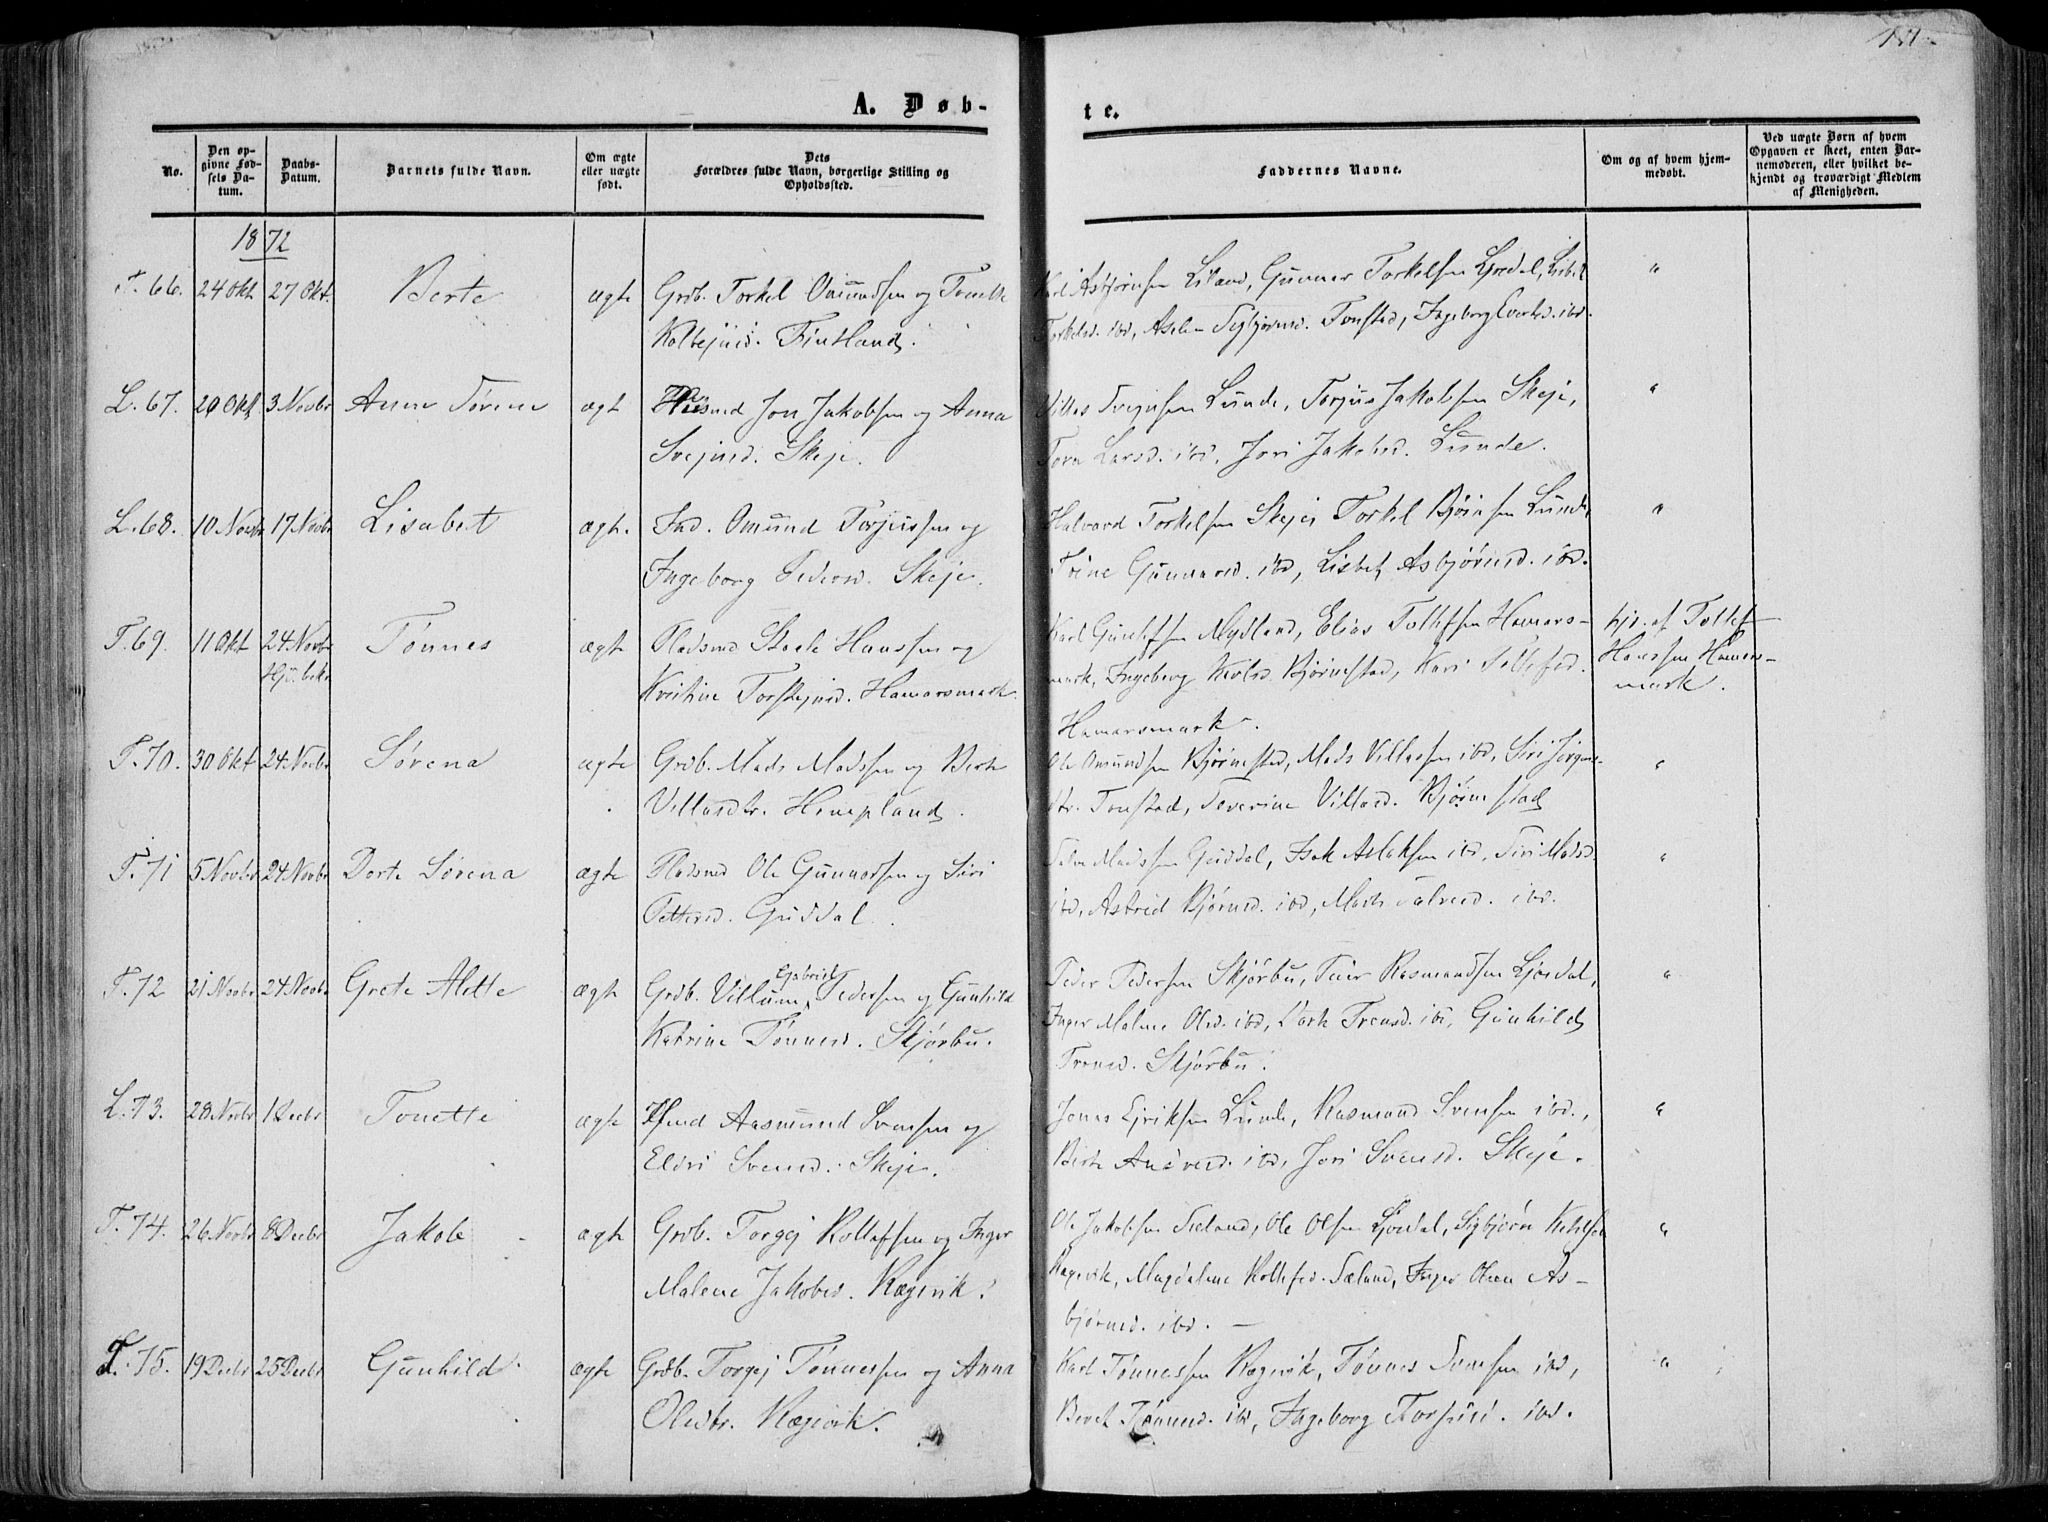 A. Døb-
te.
No.
Den opgivne Fødsels Datum.
Daabs-Datum.
Barnets fulde Navn.
Om ægte eller uægte født.
Dets Forældres fulde Navn, borgerlige Stilling og Opholdssted.
Faddernes Navne.
Om og af hvem hjemmedøbt.
Ved uægte Børn af hvem Opgaven er skeet, enten Barnemoderen, eller hvilket bekjendt og troværdigt Medlem af Menigheden.
1872
T. 66. 24 Okt 27 Okt. Berte ægte Grdb. Torkel Omundsen og Tonette
Kolbejnsd. Fintland.
Karl Asbjørnsen Liland, Gunnar Torkelsen Lredal, Lisbet
Torkelsd. ibd, Aselie Sigbjørnsd. Tonstad, Ingeborg Evertsd. ibd.
"
L. 67. 20 Okt 3 Novbr Anne Sørene ægt Plsmd Jon Jakobsen og Anna
Svejnsd. Skeje.
Villas Svejnsen Lunde, Torjus Jakobsen Skeje,
Tora Larsd. ibd, Jori Jakobsd. Lunde.
"
L. 68. 10 Novbr 17 Novbr Lisabet ægte. Ind. Omund Torjussen og
Ingeborg Pedersd. Skeje.
Halvard Torkelsen Skeje, Torkel Bjørnsen Lunde,
Trine Gunnarsd. ibd, Lisbet Asbjørnsd. ibd.
"
T. 69. 11 Okt 24 Novbr Tønnes ægte Pladsmd Hansen og
Hjd. bekr
Kristine Torstejnsd. Hamarsmark.
Karl Gunlefsen Mydland, Elias Tollefsen Hamars-
mark, Ingeborg Bjørnestad, Kari Tollefsd.
Hamarsmark.
hjd. af Tollef
Hansen Hamars-
mark.
T. 70. 30 Okt 24. Novbr Sørena ægte Grdb. Mads Madssen og Berte
Villasdtr. Hompland.
Ole Omundsen Bjørnestad, Mads Villassen ibd, Siri Jørgens-
dtr. Tonstad, Severine Villasd. Bjørnestad
"
T. 71 5 Novbr 24 Novbr Dorte Sørena ægte Pladsmd Ole Gunnarsen og Siri
Pettersd. Guddal.
Salve Madssen Guddal, Isak Aslaksen ibd, Siri Madsd.
ibd, Astrid Bjørnsd. ibd, Mads Salvesd. ibd.
"
T. 72 21 Novbr 24 Novbr Grete Alette ægte Grdb. Villum Gabriel Pedersen og Gunhild
Katrine Tønnesd. Skjørbu.
Peder Pedersen Skjørbu, Peder Rasmundsen Ljosdal,
Inger Malene Olsd. ibd, Dorte Tronsd. ibd, Gunhild
Tronsd. Skjørbu.
"
L. 73. 28 Novbr 1 Decbr Tonette ægte Hsmd Aasmund Svensen og
Eldri Svensd. Skeje.
Jonas Ejriksen Lunde, Rasmund Svensen ibd.,
Berte Andersd. ibd, Jori Svensd. Skeje.
"
T. 74. 26 Novbr 8 Decbr Jakob ægte Grdb. Torgej Rollefsen og Inger
Malene Jakobsd. Rægevik.
Ole Jakobsen Sæland, Ole Olsen Ljosdal, Sigbjørn Ketilsen
Rægevik, Magdalene Rollefsd. Sæland, Inger Olene As-
bjørnsd. ibd. —
"
T. 75. 19 Decbr 25 Decbr Gunhild ægte Grdb. Torgej Tønnessen og Anna
Olsdtr. Rægevik.
Karl Tønnessen Rægevik, Tønnes Svensen ibd,
Beret Tønnesd. ibd, Ingeborg ibd.
"